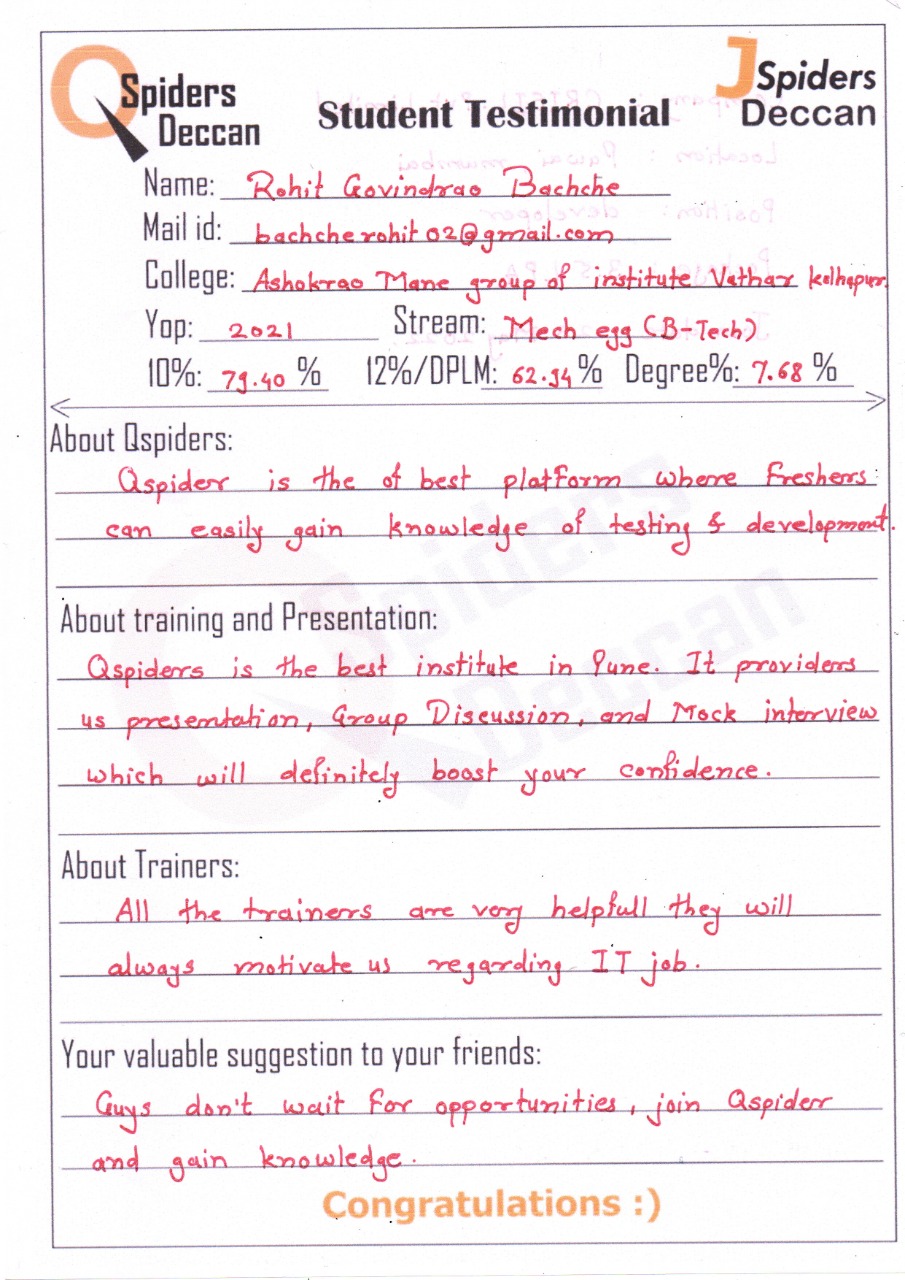 QSpiders Deccan
Student Testimonial
JSpiders Deccan
Name: Rohit Govindrao Bachche
Mail id: bachcherohit02@gmail.com
College: Ashokrao Mane group of institute Vathar kolhapur.
Yop: 2021 Stream: Mech egg (B-Tech)
10%: 79.40 % 12%/DPLM: 62.94 % Degree%: 7.68 %
About Qspiders:
Qspider is the of best platform where freshers
can easily gain knowledge of testing & development.
About training and Presentation:
Qspiders is the best institute in Pune. It providers
us presentation, Group Discussion, and Mock interview
which will definitely boost your confidence.
About Trainers:
All the trainers are very helpfull they will
always motivate us regarding IT job.
Your valuable suggestion to your friends:
Guys don't wait for opportunities, join Qspider
and gain knowledge.
Congratulations :)